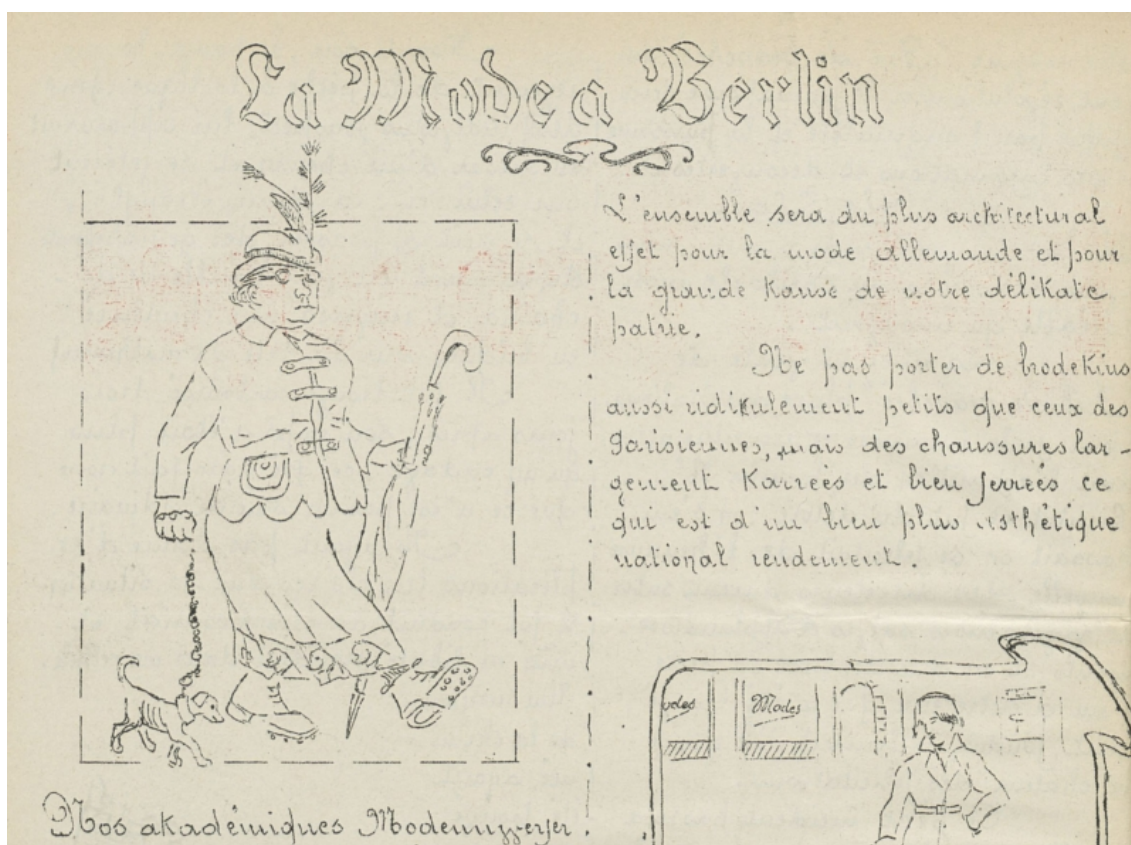 La Mode a Berlin
Nos akadémiques
L'ensemble sera du plus architectural
effet pour la mode allemande et pour
la grande Kause de notre délikate
patrie.
Ne pas porter de brodekins
aussi ridikulement petits que ceux des
Parisiennes, mais des chaussures lar-
gement Karrées et bien ferrées ce
qui est d'un bien plus esthétique
national rendement.
odes
Modes